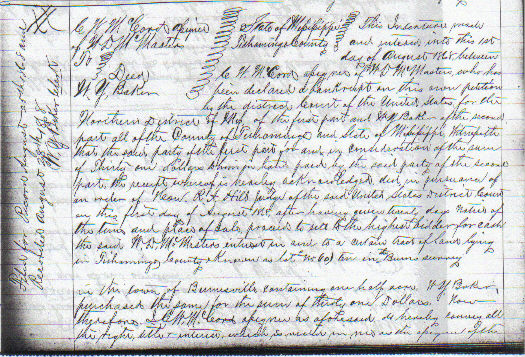 C W McCord assignee
of W D McMaster
To } Deed
W Y Baker
State of Mississippi
Tishomingo County
This Indenture made
and entered into this 1st
day of August 1868 between
C W McCord assignee of W D McMasters who has
been declared a bankrupt on his own petition
by the district Court of the United States for the
Northern District of Miss of the first part and W Y Baker of the second
part all of the County of Tishomingo and State of Mississippi
that the said party of the first part for and in consideration of the sum
of Thirty one Dollars to him in hand paid by the said party of the second
part the receipt whereof is hereby acknowledged, did in pursuance of
an order of Hon. R A Hill Judge of the said United States District Court
on this first day of August 1868 after having given twenty days notice of
the time and place of sale, proceed to sell to the highest bidder for cash
the said W D McMasters interest in and to a certain tract of land lying
in Tishomingo County Known as lot No (10) ten in Burns survey
in the town of Burnsville containing one half acre. W Y Baker
purchased the same for the sum of thirty one Dollars. Now
therefore I C W McCord assignee as aforesaid do hereby convey all
the right title & interest which is vested in me as the assignee of the
Filed for Record August
Recorded August 8
W. Y. Baker Clerk